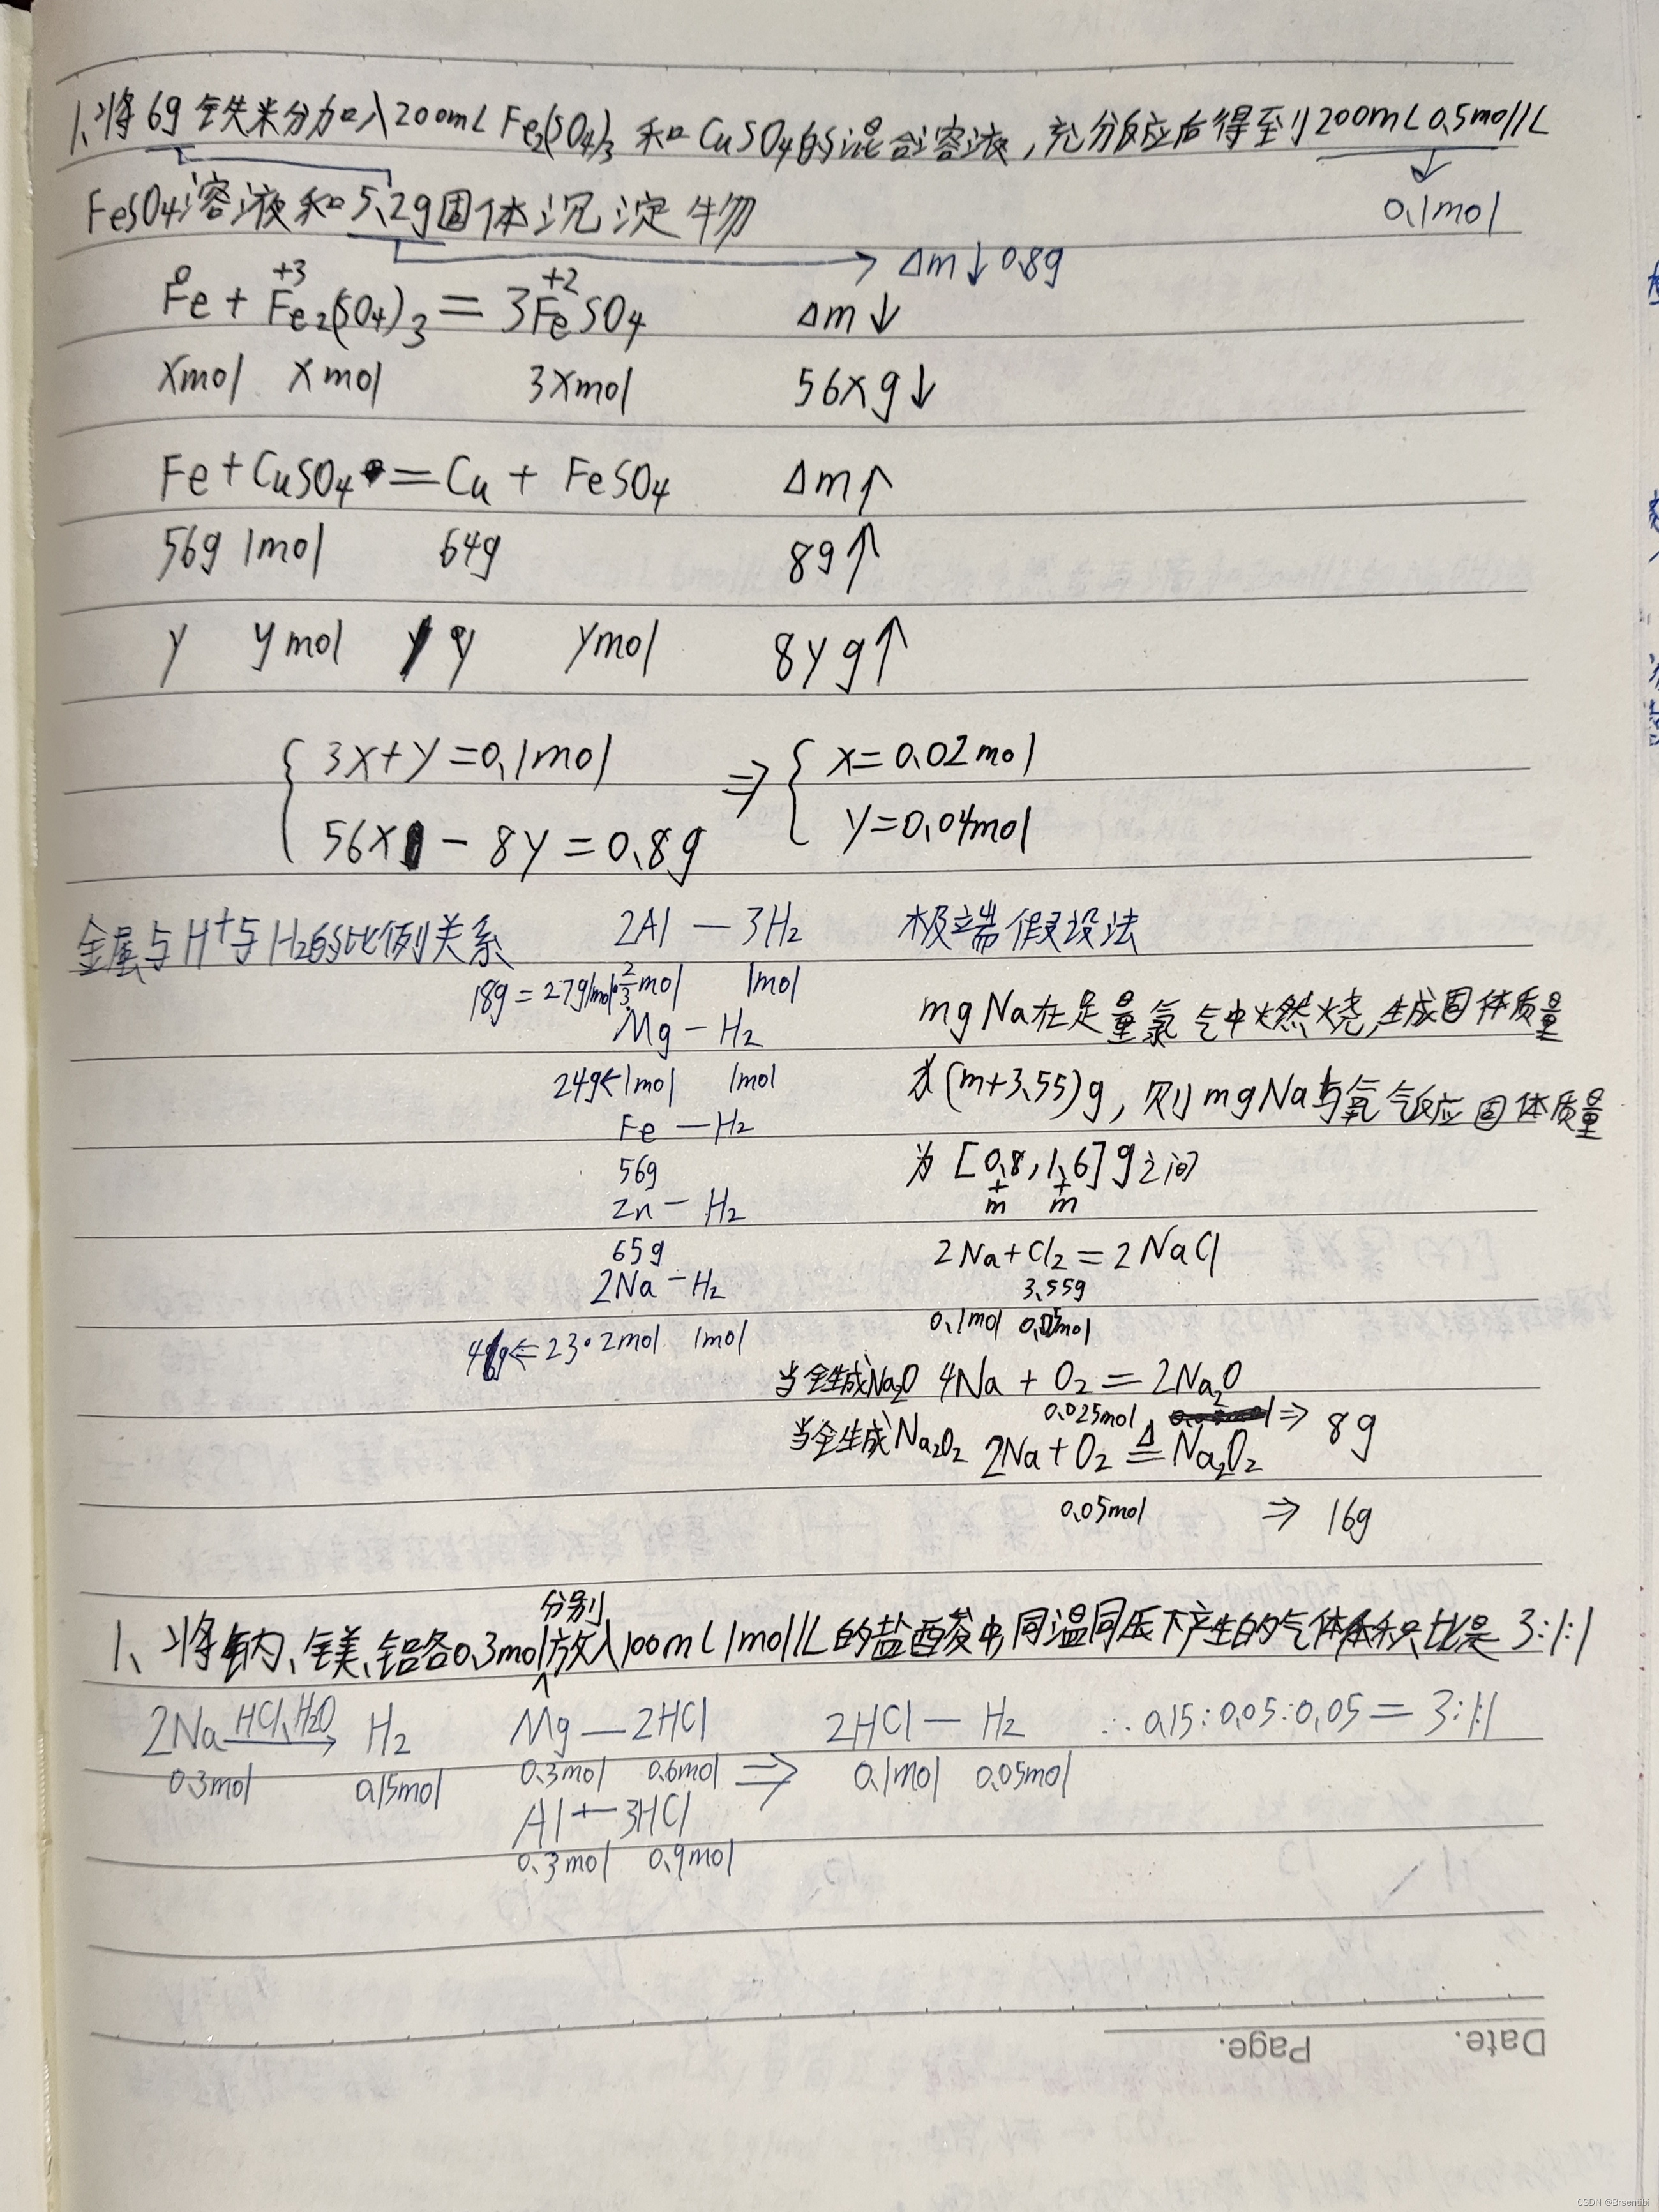 1、将6g铁粉加入200mL Fe₂(SO₄)₃ 和CuSO₄的混合溶液，充分反应后得到200mL0.5mol/L
FeSO₄溶液和5.2g固体沉淀物
0.1mol
→ Δm↓0.8g
0 +3 +2
Fe + Fe₂(SO₄)₃ = 3FeSO₄ Δm↓
xmol xmol 3xmol 56xg↓
Fe+CuSO₄ = Cu + FeSO₄ Δm↑
56g 1mol 64g 8g↑
y ymol y ymol 8yg↑
3x+y=0.1mol ⇒ x=0.02mol
56x - 8y = 0.8g y=0.04mol
金属与H⁺与H₂的比例关系
2Al — 3H₂
18g = 27g/mol·2/3mol 1mol
Mg — H₂
24g←1mol 1mol
Fe — H₂
56g
Zn — H₂
65g
2Na — H₂
46g⇐23·2mol 1mol
极端假设法
mgNa在足量氯气中燃烧,生成固体质量
为(m+3.55)g，则mgNa与氧气反应固体质量
为[0.8,1.6]g之间
+ +
m m
2Na+Cl₂=2NaCl
3.55g
0.1mol 0.05mol
当全生成Na₂O 4Na + O₂ = 2Na₂O
0.025mol ⇒ 8g
当全生成Na₂O₂ 2Na+O₂ ≜ Na₂O₂
0.05mol ⇒ 16g
分别
1、将钠、镁、铝各0.3mol放入100mL1mol/L的盐酸中,同温同压下产生的气体体积比是3:1:1
2Na HCl、H₂O → H₂ Mg — 2HCl 2HCl — H₂ ∴0.15:0.05:0.05=3:1:1
0.3mol 0.15mol 0.3mol 0.6mol ⇒ 0.1mol 0.05mol
Al — 3HCl
0.3mol 0.9mol
Date. Page.
CSDN @Brsentibi